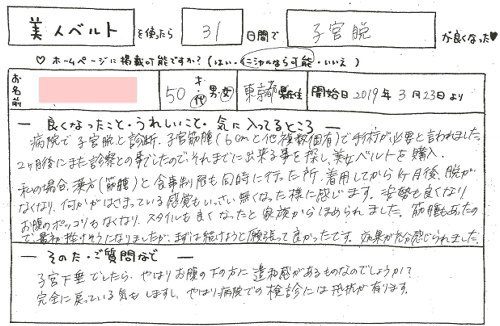 美人ベルト を使ったら 31 日間で 子宮脱 が良くなった♥
♡ ホームページに掲載可能ですか？（はい・イニシャルなら可能・いいえ）
お名前 50 才・代 男・女 東京都 在住 開始日 2019年 3月23日より
― 良くなったこと・うれしいこと・気に入ってるところ
病院で子宮脱と診断、子宮筋腫（6cmと他複数個有）で手術が必要と言われました。
2ヶ月後にまた診察との事でしたのでそれまでに出来る事を探し美人ベルトを購入。
私の場合、漢方（筋腫）と食事制限も同時に行った所、着用してから1ヶ月後、脱が
なくなり、何かがはさまっている感覚もいっさい無くなった様に感じます。姿勢も良くなり
お腹のポッコリもなくなり、スタイルも良くなったと家族からほめられました。筋腫もあったの
で最初挫けそうになりましたが、まずは続けようと頑張って良かったです。効果が充分感じられました。
― そのた・ご質問など ―
子宮下垂でしたら、やはりお腹の下の方に違和感があるものなのでしょうか？
完全に戻っている気もしますし、やはり病院での検診には抵抗が有ります。